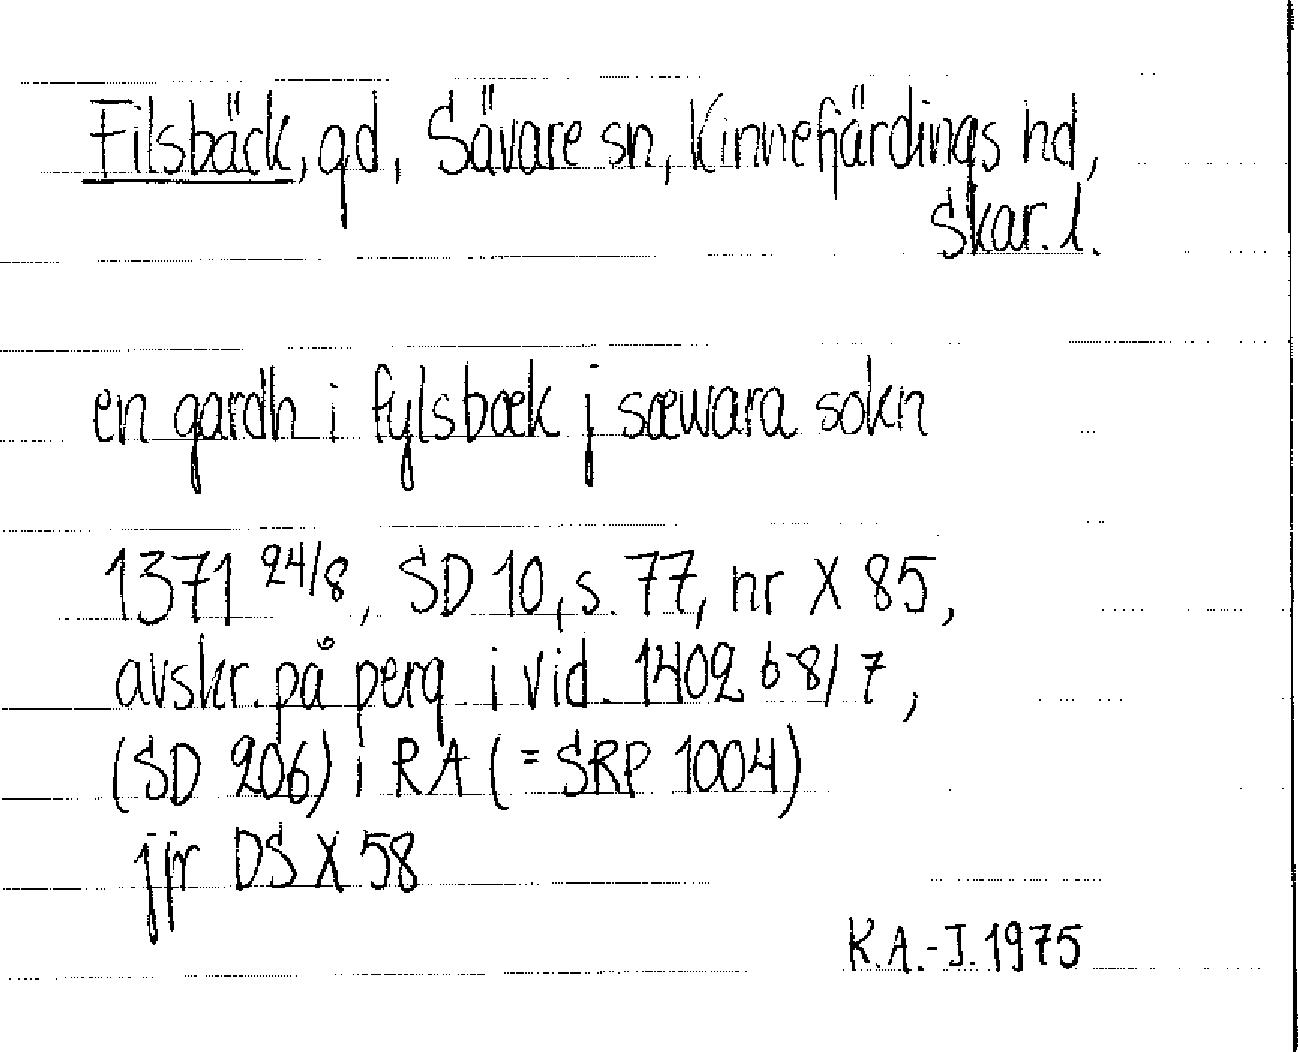 Filsbäck, gd, Sävare sn, Kinnefjärdings hd,
Skar. l.
en gardh i fylsbæk j sæwara sokn
1371 24/8, SD 10, s. 77, nr X 85,
avskr. på perg. i vid. 1402 8/7,
(SD 206) i RA (= SRP 1004)
jfr DS X 58
K.A.-I. 1975